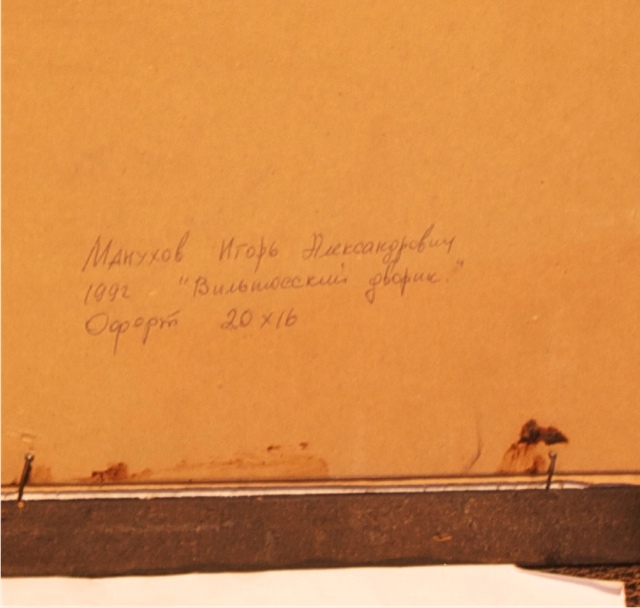 Манухов Игорь Александрович
1992 "Вильнюсский дворик."
Офорт 20×16